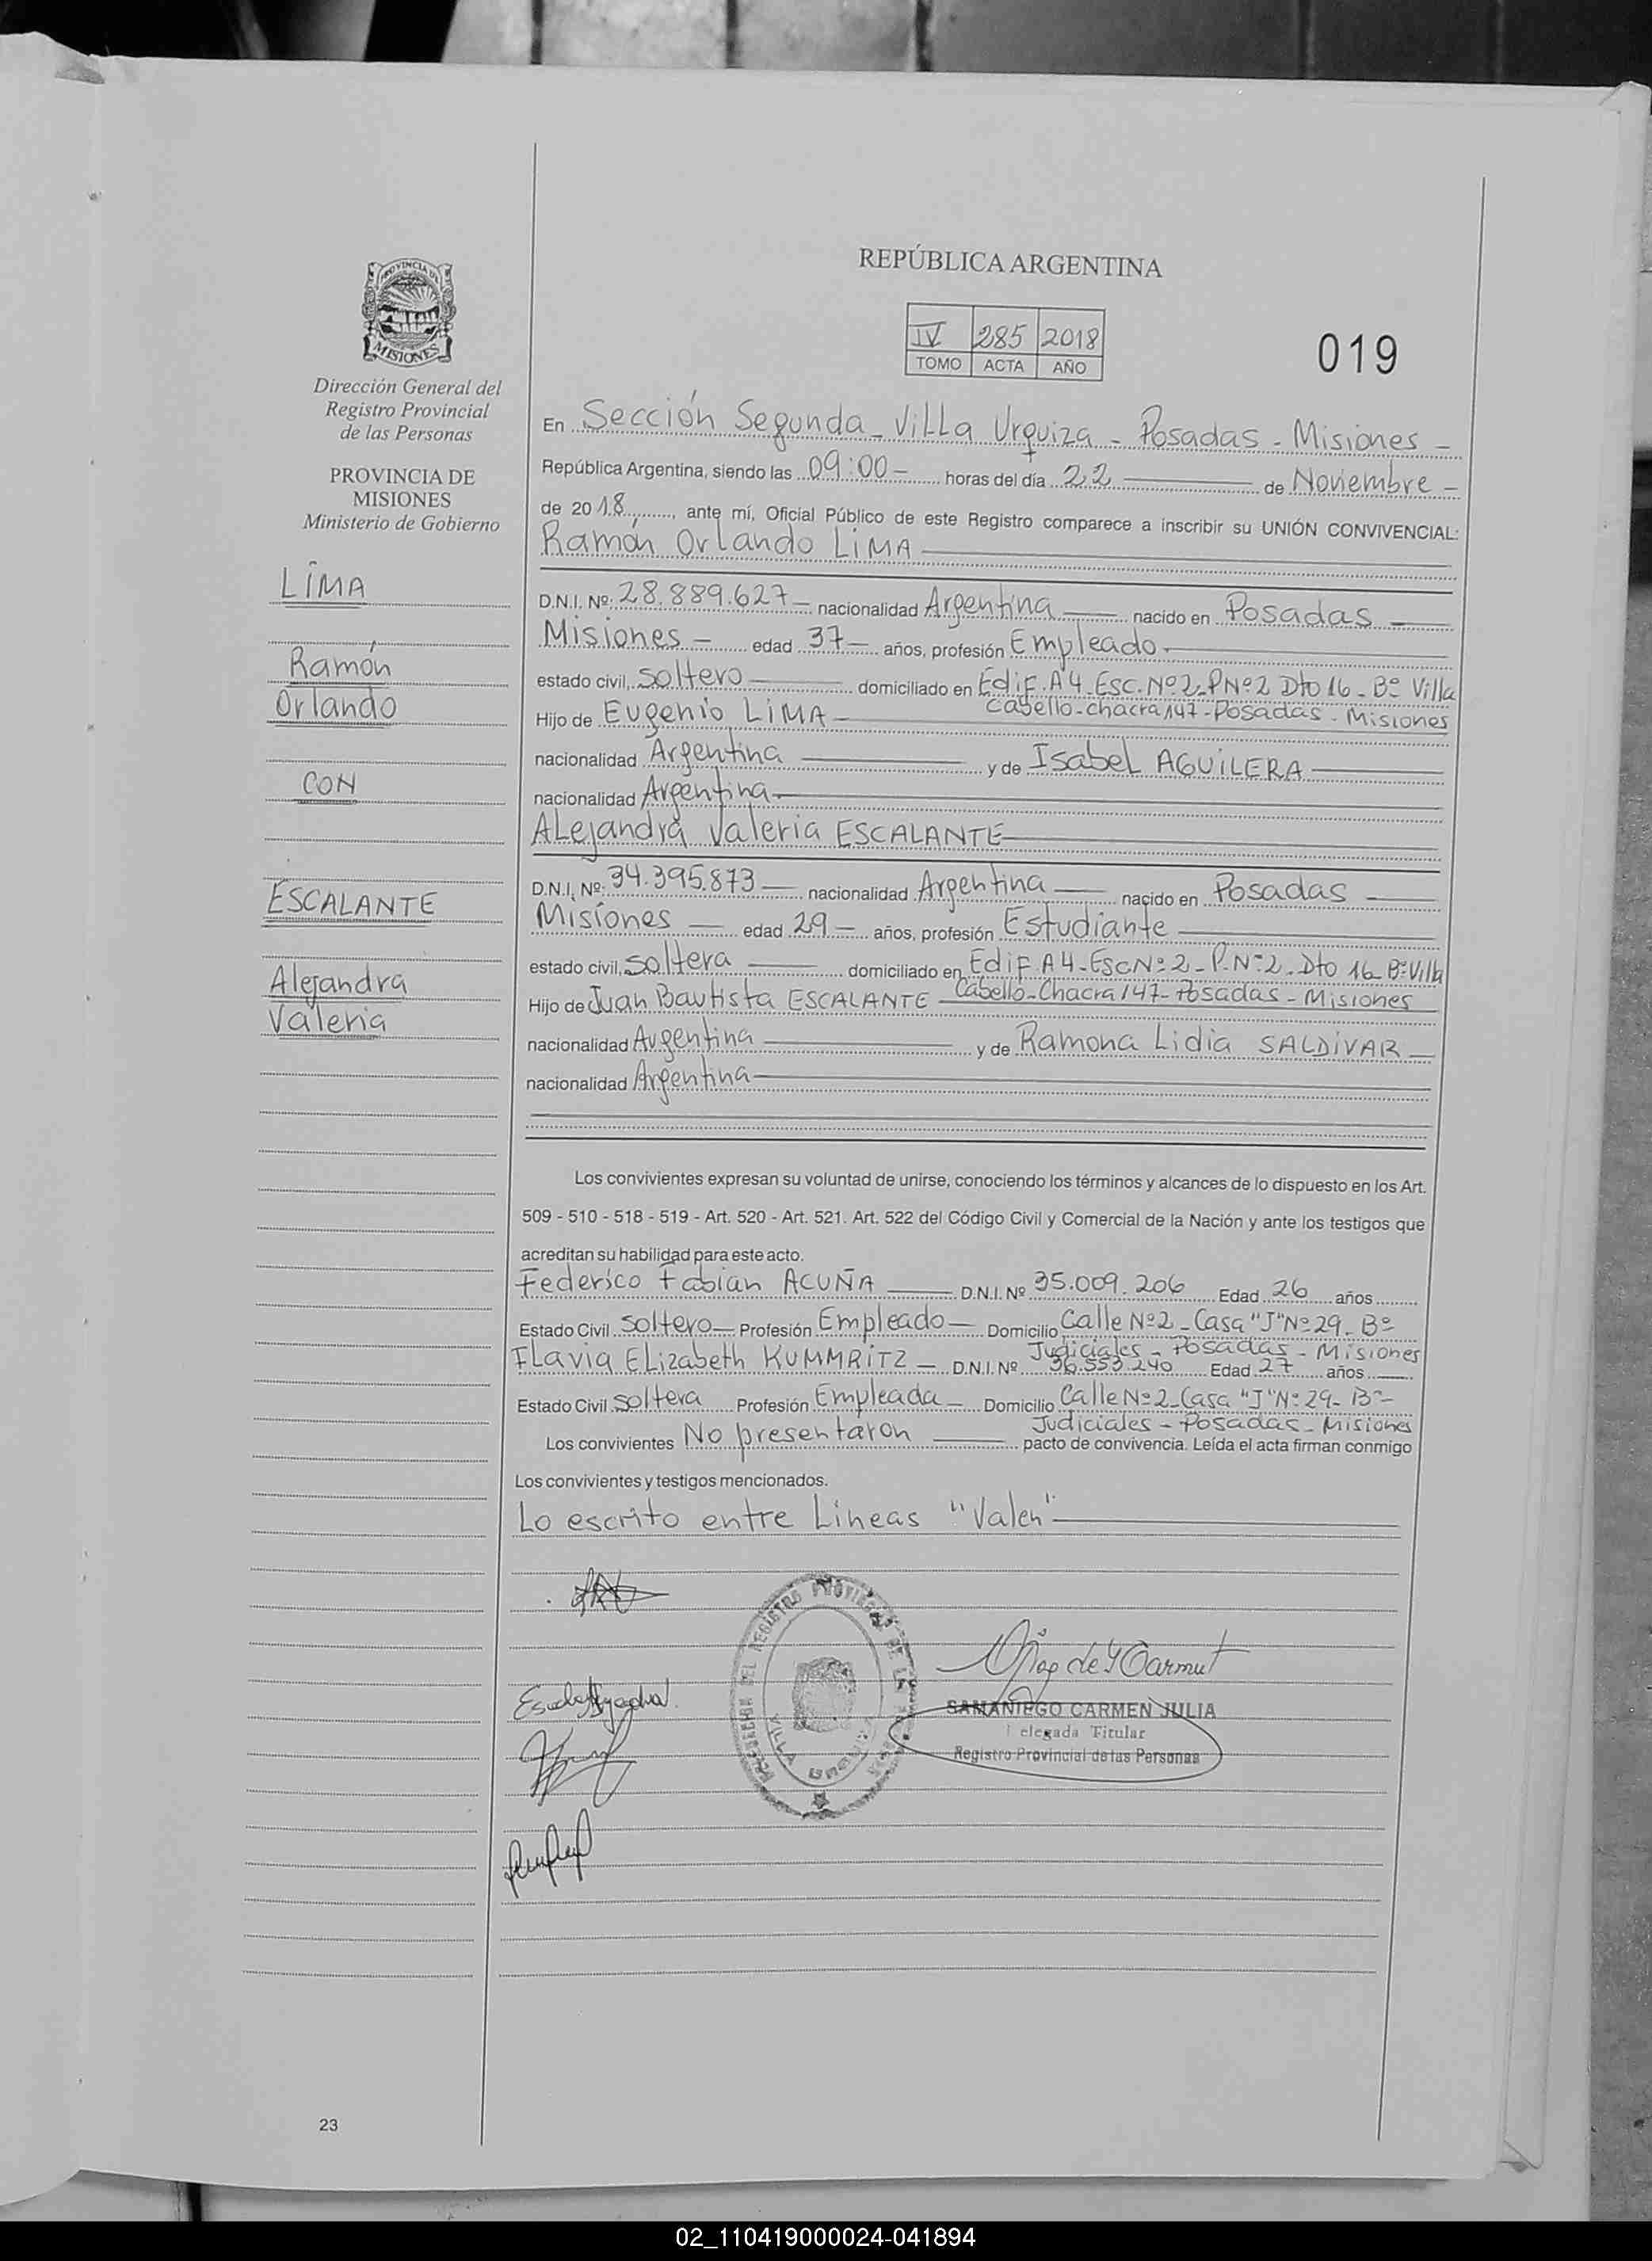 REPÚBLICA ARGENTINA
PROVINCIA DE
MISIONES
IV 285 2018
TOMO ACTA AÑO
019
Dirección General del
Registro Provincial
de las Personas
PROVINCIA DE
MISIONES
Ministerio de Gobierno
LIMA
Ramón
Orlando
CON
ESCALANTE
Alejandra
Valeria
En Sección Segunda - Villa Urquiza - Posadas - Misiones -
República Argentina, siendo las 09:00 - horas del día 22 de Noviembre -
de 2018, ante mí, Oficial Público de este Registro comparece a inscribir su UNIÓN CONVIVENCIAL:
Ramón Orlando LIMA
D.N.I. Nº: 28.889.627 - nacionalidad Argentina nacido en Posadas
Misiones - edad 37 - años, profesión Empleado -
estado civil, soltero domiciliado en Edif. A4 - Esc. Nº 2 - P Nº 2 Dto 16 - Bº Villa
Cabello - chacra 147 - Posadas - Misiones
Hijo de Eugenio LIMA
nacionalidad Argentina y de Isabel AGUILERA
nacionalidad Argentina
Alejandra Valeria ESCALANTE
D.N.I. Nº: 34.395.873 nacionalidad Argentina nacido en Posadas
Misiones edad 29 - años, profesión Estudiante
estado civil, soltera domiciliado en Edif A4 - Esc Nº 2 - P. Nº 2 - Dto 16 - Bº Villa
Cabello - Chacra 147 - Posadas - Misiones
Hijo de Juan Bautista ESCALANTE
nacionalidad Argentina y de Ramona Lidia SALDIVAR
nacionalidad Argentina
Los convivientes expresan su voluntad de unirse, conociendo los términos y alcances de lo dispuesto en los Art.
509 - 510 - 518 - 519 - Art. 520 - Art. 521. Art. 522 del Código Civil y Comercial de la Nación y ante los testigos que
acreditan su habilidad para este acto.
Federico Fabian ACUÑA D.N.I. Nº 35.009.206 Edad 26 años
Estado Civil soltero Profesión Empleado Domicilio Calle Nº 2 - Casa "J" Nº 29 - Bº
Judiciales - Posadas - Misiones
Flavia Elizabeth KUMMRITZ - D.N.I. Nº 36.553.240 Edad 27 años
Estado Civil soltera Profesión Empleada - Domicilio Calle Nº 2 - Casa "J" Nº 29 - Bº -
Judiciales - Posadas - Misiones
Los convivientes No presentaron pacto de convivencia. Leída el acta firman conmigo
Los convivientes y testigos mencionados.
Lo escrito entre Lineas "Valen"
SAMANIEGO CARMEN JULIA
elegada Titular
Registro Provincial de las Personas
23
02_110419000024-041894